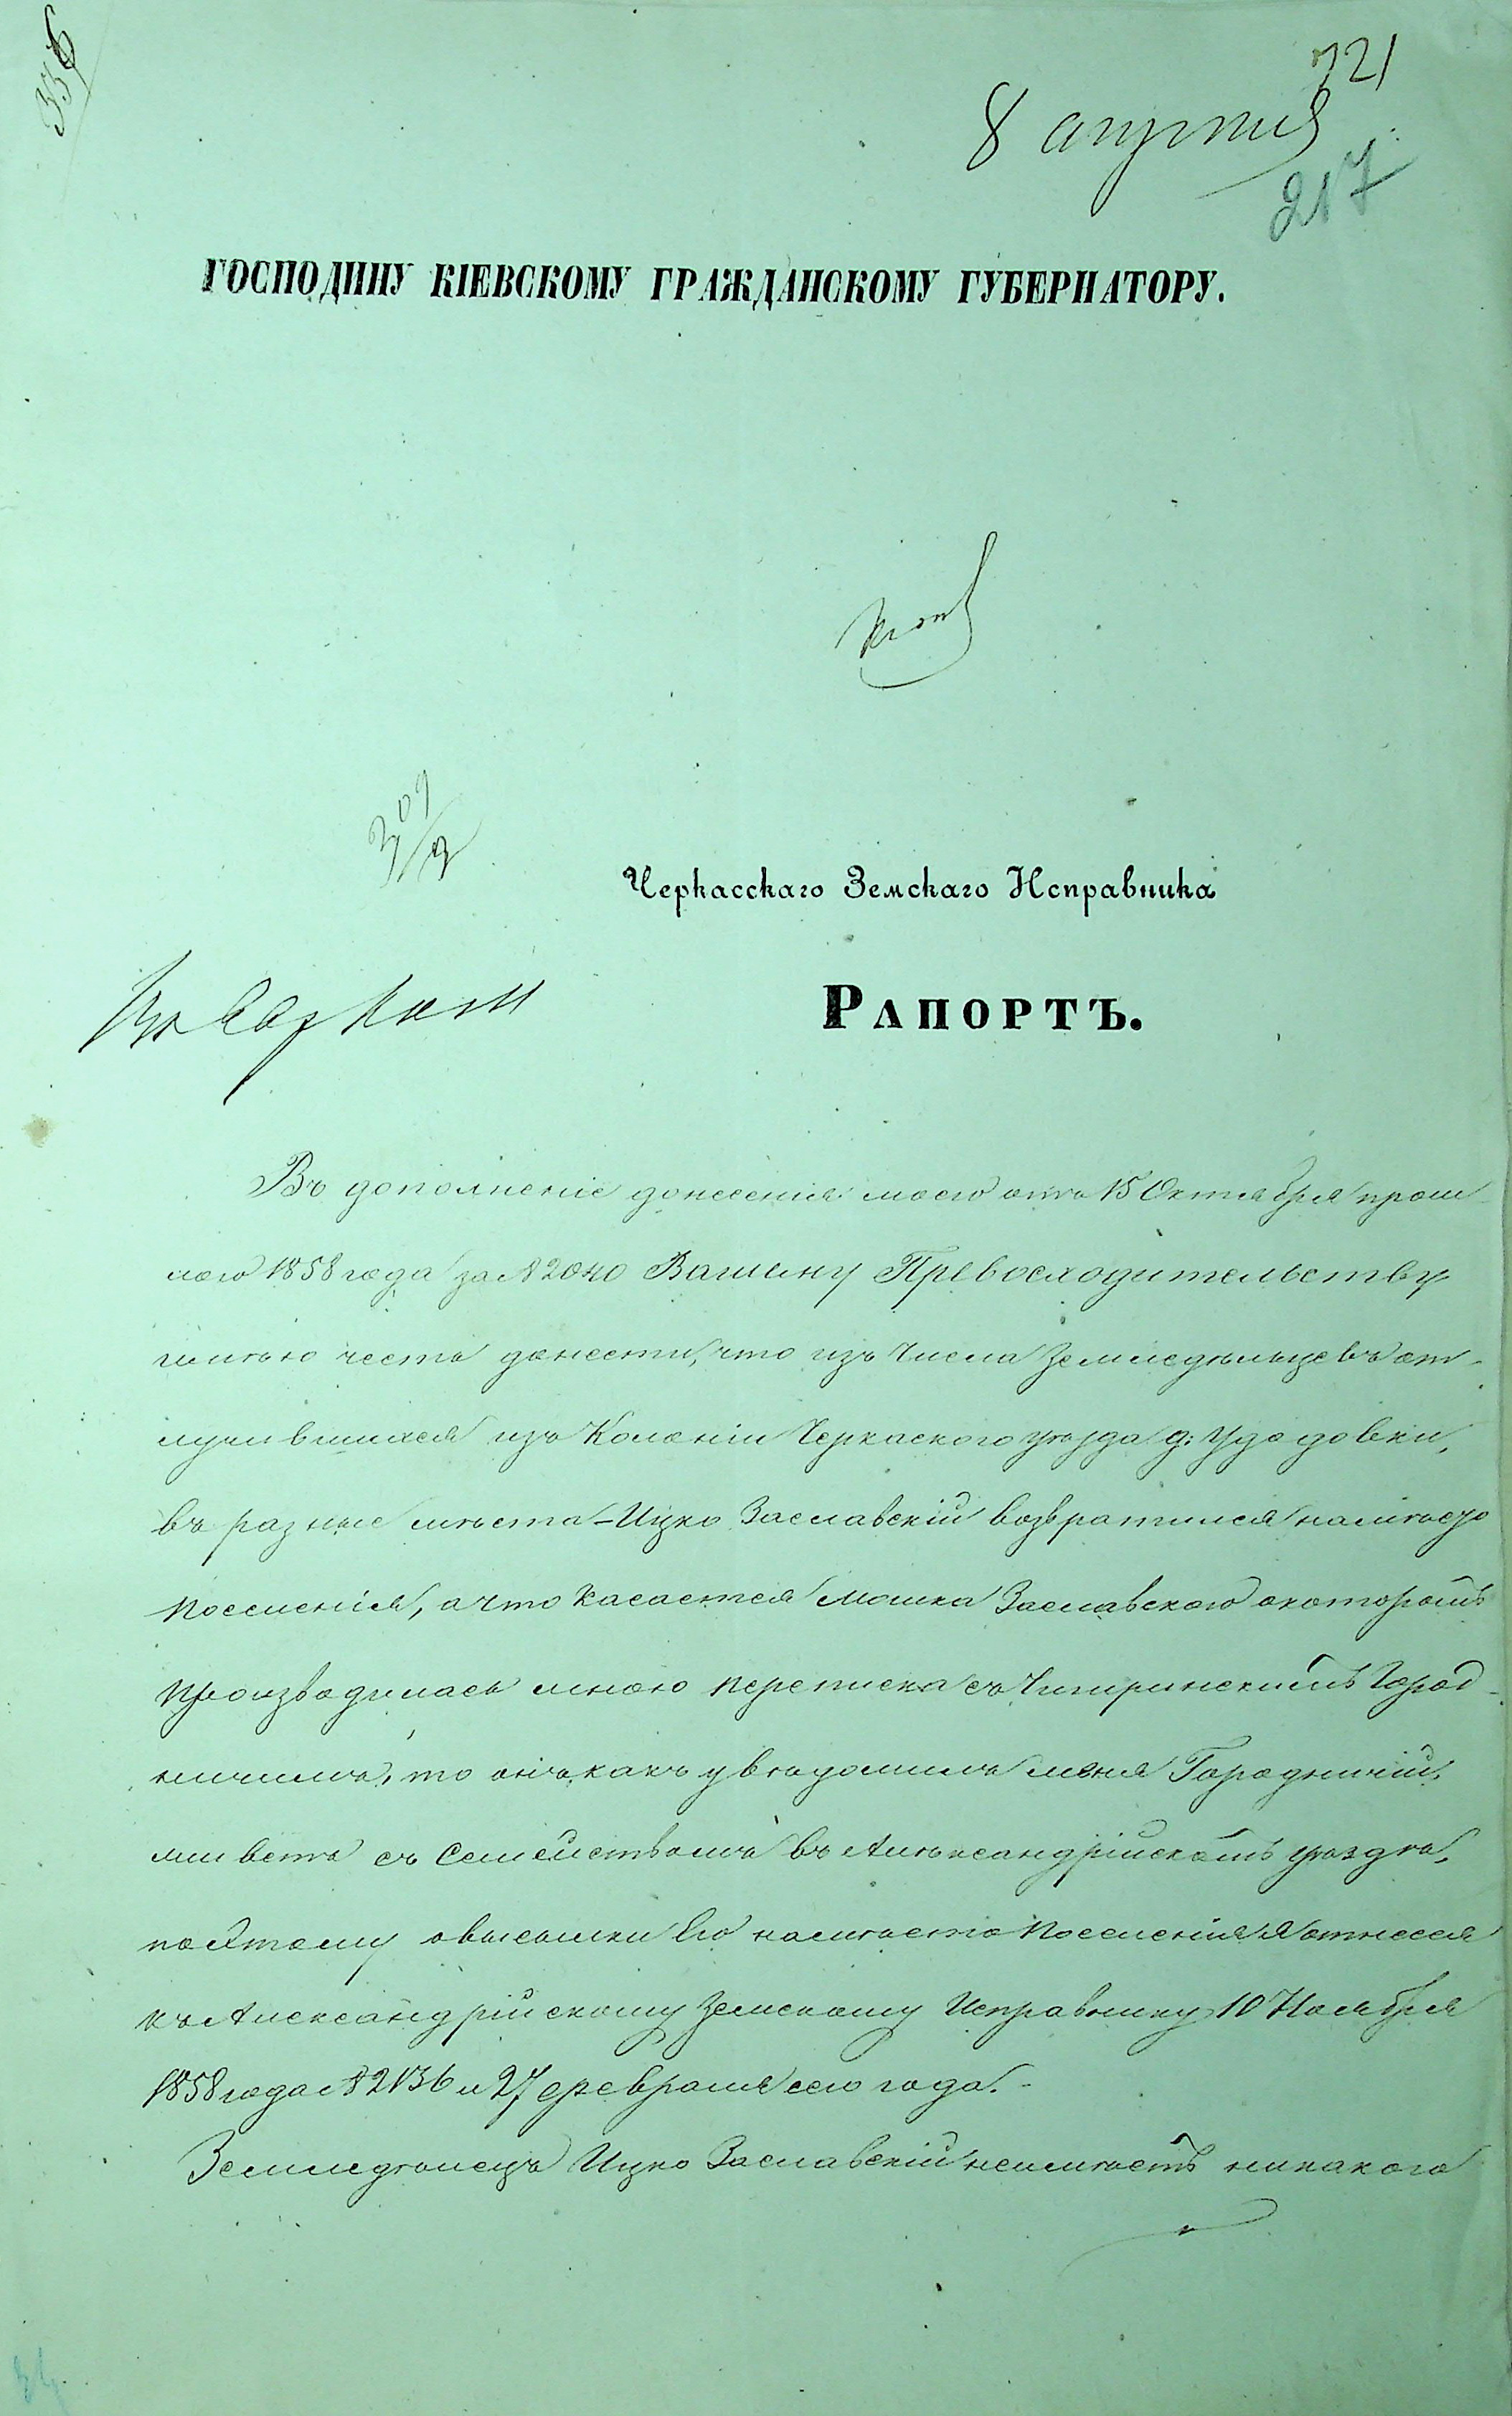 721
8 августа
217
ГОСПОДИНУ КІЕВСКОМУ ГРАЖДАНСКОМУ ГУБЕРНАТОРУ.
Черкасскаго Земскаго Исправника
РАПОРТЪ.
Въ дополненіе донесенія моего отъ 15 Октября прош-
лого 1858 года за № 2040 Вашему Превосходительству
имѣю честь донести, что изъ числа земледѣльцевъ от-
лучившихся изъ Колоніи Черкаского уѣзда д: Удодовки,
въ разные мѣста - Ицко Заславскій возвратился на мѣсто
поселенія, а что касается Мошка Заславского о которомъ
производилась мною переписка съ Чигиринскимъ Город-
ничимъ, то онъ какъ увѣдомилъ меня Городничій,
живетъ съ семействомъ въ Александрійскомъ уѣздѣ,
поэтому о высылки его на мѣсто поселенія я отнесся
къ Александрійскому Земскому Исправнику 10 Ноября
1858 года № 2136 и 27 февраля сего года.-
Земледѣлецъ Ицко Заславскій неимѣетъ никакого